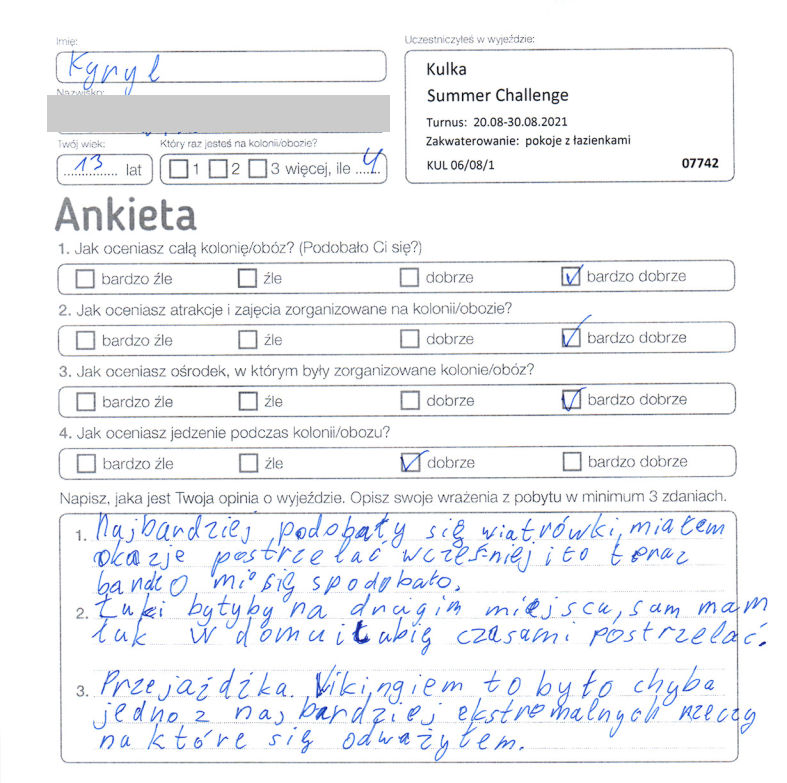 Imię:
Uczestniczyłeś w wyjeździe:
Kyryl
Kulka
Summer Challenge
Turnus: 20.08-30.08.2021
Zakwaterowanie: pokoje z łazienkami
KUL 06/08/1 07742
Nazwisko:
Twój wiek:
Który raz jesteś na kolonii/obozie?
13 lat
1 2 3 więcej, ile 4
Ankieta
1. Jak oceniasz całą kolonię/obóz? (Podobało Ci się?)
bardzo źle źle dobrze bardzo dobrze
2. Jak oceniasz atrakcje i zajęcia zorganizowane na kolonii/obozie?
bardzo źle źle dobrze bardzo dobrze
3. Jak oceniasz ośrodek, w którym były zorganizowane kolonie/obóz?
bardzo źle źle dobrze bardzo dobrze
4. Jak oceniasz jedzenie podczas kolonii/obozu?
bardzo źle źle dobrze bardzo dobrze
Napisz, jaka jest Twoja opinia o wyjeździe. Opisz swoje wrażenia z pobytu w minimum 3 zdaniach.
1. Najbardziej podobały się wiatrówki, miałem
okazje postrzelać wcześniej i to teraz
mi się spodobało.
2. Łuki byłyby na drugim miejscu, sam mam
łuk w domu i lubię czasami postrzelać.
3. Przejażdżka Vikingiem to było chyba
jedno z najbardziej ekstremalnych rzeczy
na które się odważyłem.